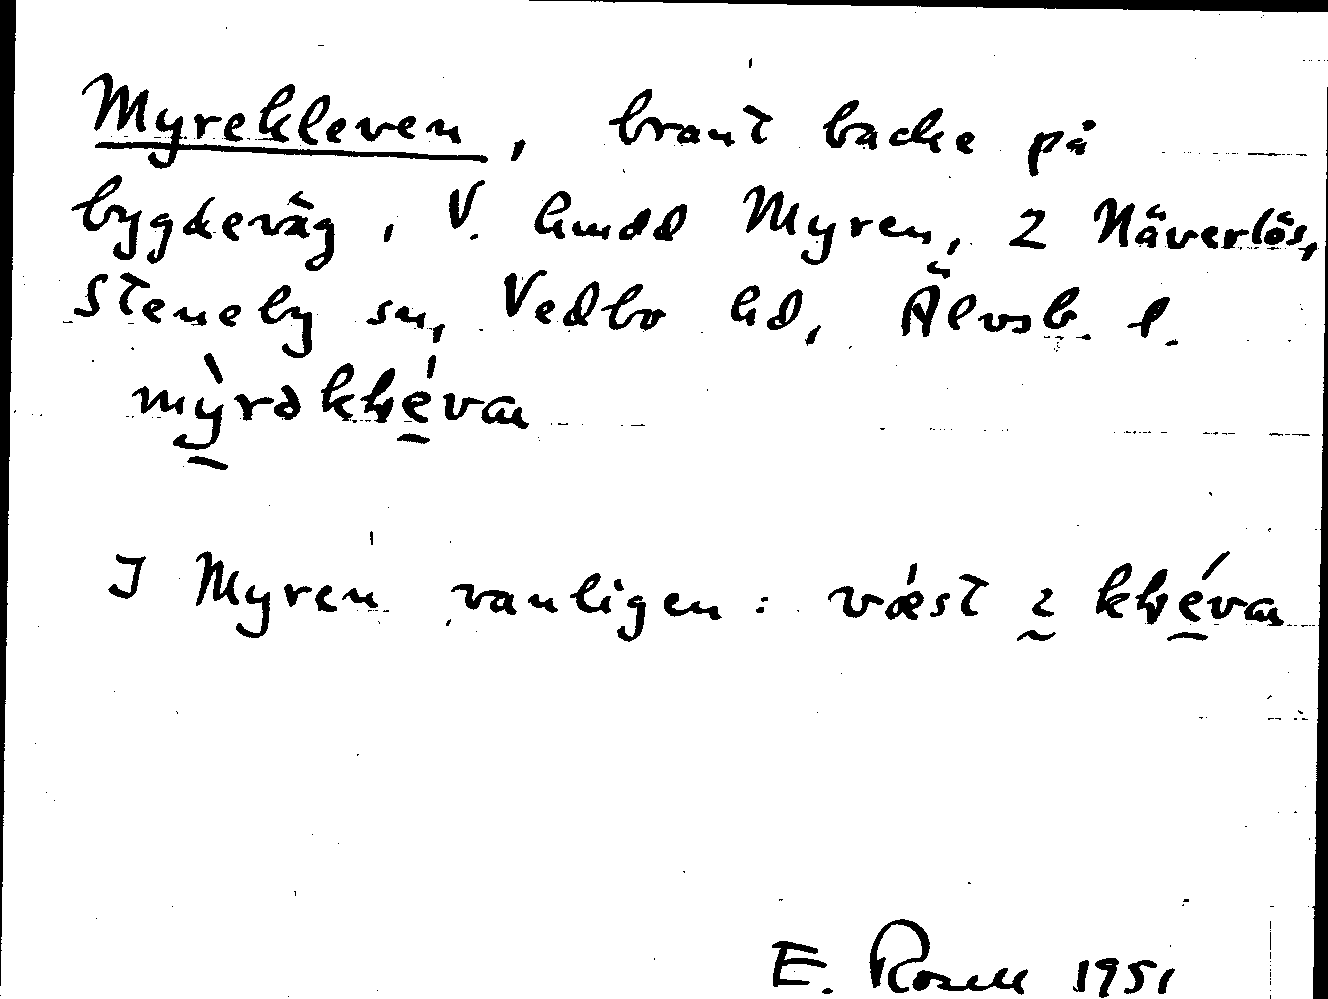 Myrekleven, brant backe på
bygdeväg, V. hmdd Myren, 2 Näverlös,
Steneby sn, Vedbo hd, Älvsb. l.
I Myren vanligen: væst
E. Rosell 1951